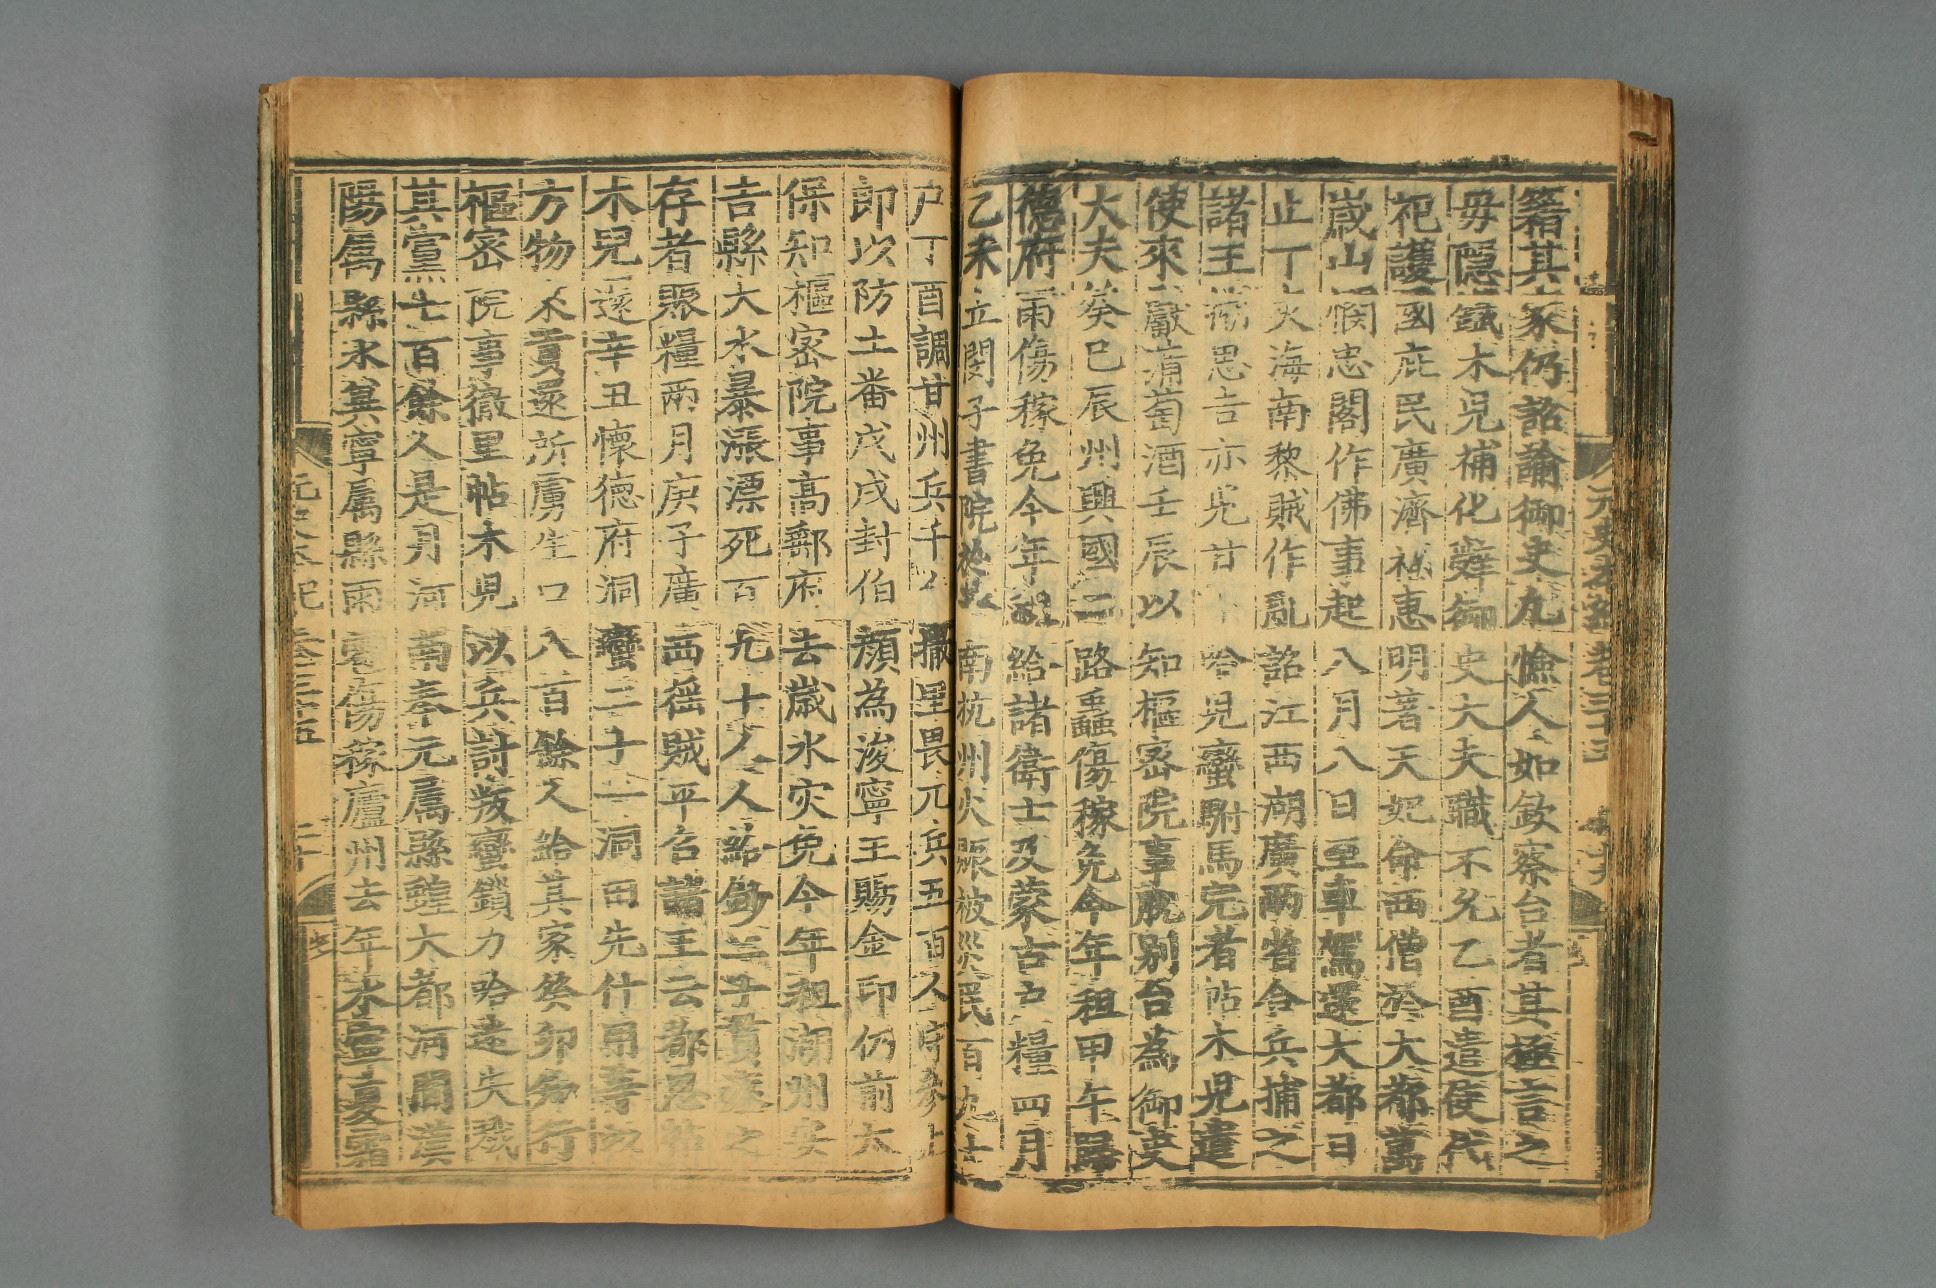 元史本紀卷三十五
籍其家仍詔諭御史九憸人如欽察台者其極言之
毋隱鉞木兒補化辭御史大夫職不允乙酉遣使代
祀護國庇民廣濟福惠明著天妃命西僧於大都萬
歲山憫忠閣作佛事起八月八日至車駕還大都日
止丁亥海南黎賊作亂詔江西湖廣兩省合兵捕之
諸王搠思吉亦兒甘卜哈兒蠻駙馬完者帖木兒遣
使來獻蒲萄酒壬辰以知樞密院事脫别台為御史
大夫癸巳辰州興國二路蟲傷稼免今年租甲午歸
德府雨傷稼免今年租給諸衛士及蒙古户糧四月
乙未立閔子書院於濟南杭州火賑被災民百九十
户丁酉調甘州兵千人撒里畏兀兵五百人守參卜
郎以防土番戊戌封伯顏為浚寧王賜金印仍前太
保知樞密院事高郵府去歲水灾免今年租湖州安
吉縣大水暴漲漂死百九十人人給鈔二十貫瘞之
存者賑糧兩月庚子廣西徭賊平召諸王云都思帖
木兒還辛丑懷德府洞蠻二十一洞田先什用等以
方物來貢還所虜生口八百餘人給其家癸卯知行
樞密院事徹里帖木兒以兵討叛蠻鎖力哈迷失戮
其黨七百餘人是月河南奉元属縣蝗大都河間漢
陽属縣水冀寧属縣雨雹傷稼廬州去年水寧夏霜
元史本紀卷三十五 二十